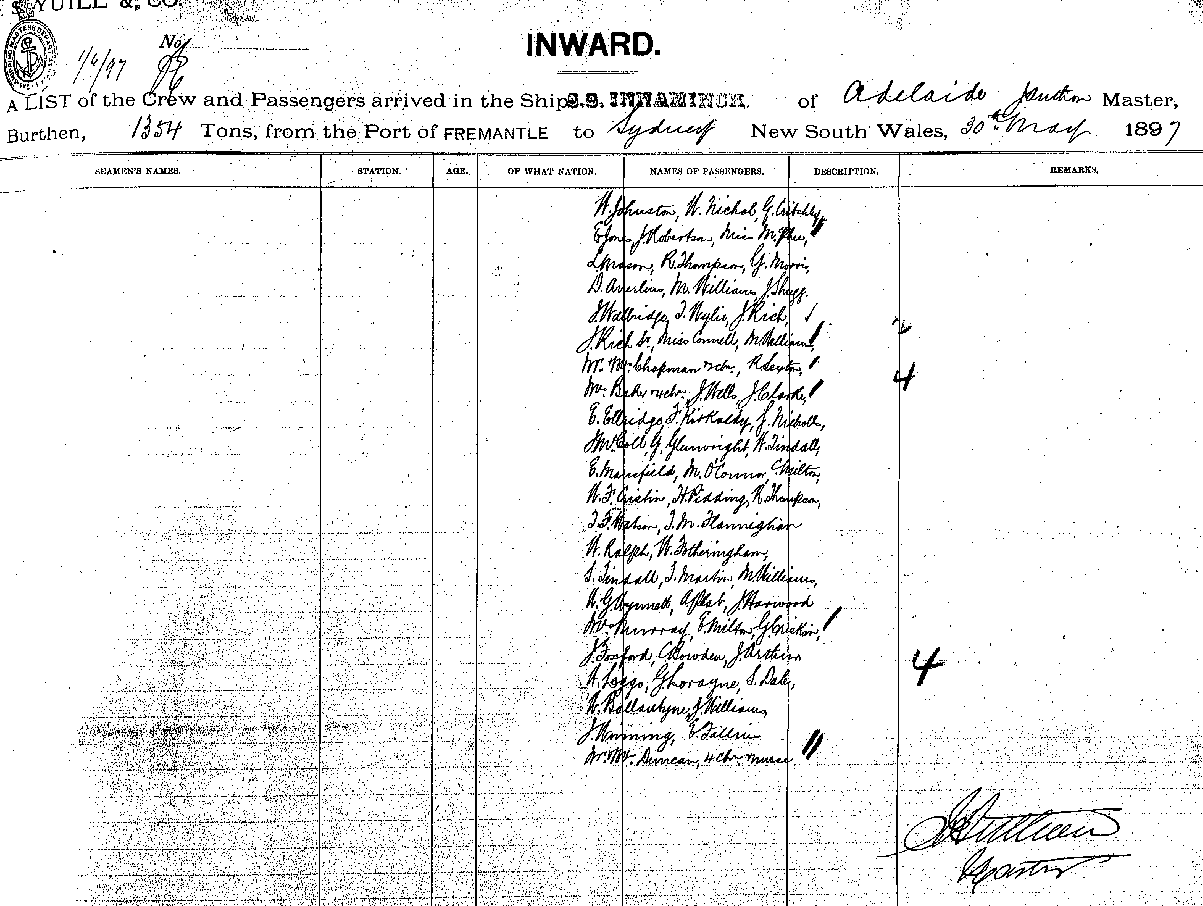 YUILL & CO.
No
1/6/97
INWARD.
A LIST of the Crew and Passengers arrived in the Ship S.S. INNAMINCK. of Adelaide Master,
Burthen, 1354 Tons, from the Port of FREMANTLE to Sydney New South Wales, 30th May 1897
SEAMEN'S NAMES. STATION. AGE. OF WHAT NATION. NAMES OF PASSENGERS. DESCRIPTION. REMARKS.
W. Johnston, W. Nichol, G. Critchley
E Jones, J. Robertson, Miss McPhee,
L Mason, R. Thompson, G. Morris,
D. Averlins, M. Williams, J. Shegg.
J. Walbridge, T. Wylie, J. Rich,
2
J. Rich Sr, Miss Connell, McWilliams,
Mr. Mrs Chapman & chn, R Sexton,
4
Mrs. Baker & chn, J. Wells, J Clarke,
E. Elbridge, F. Kirkaldy, J. Nicholls,
J McColl, G. Glenwright, W. Tindall,
E. Mansfield, M. O'Connor, C Milton,
W. F. Cristin, H Pidding, R. Thompson,
T. F. Watson, T. M. Flannighan
W. Ralph, W. Fotheringham,
S. Tindall, J. Martin, McWilliams,
W. G Wynnett, J Harwood
Mrs Murray, E. Milton, G Criskin,
J. Bowden, J. Arthur
4
W. Leggo, G. Lovayne, S. Dale,
W. Ballantyne, J Williams
J. Winning, E. Tallin
Mr. Mrs. Duncan, 4 chn & nurse
Master